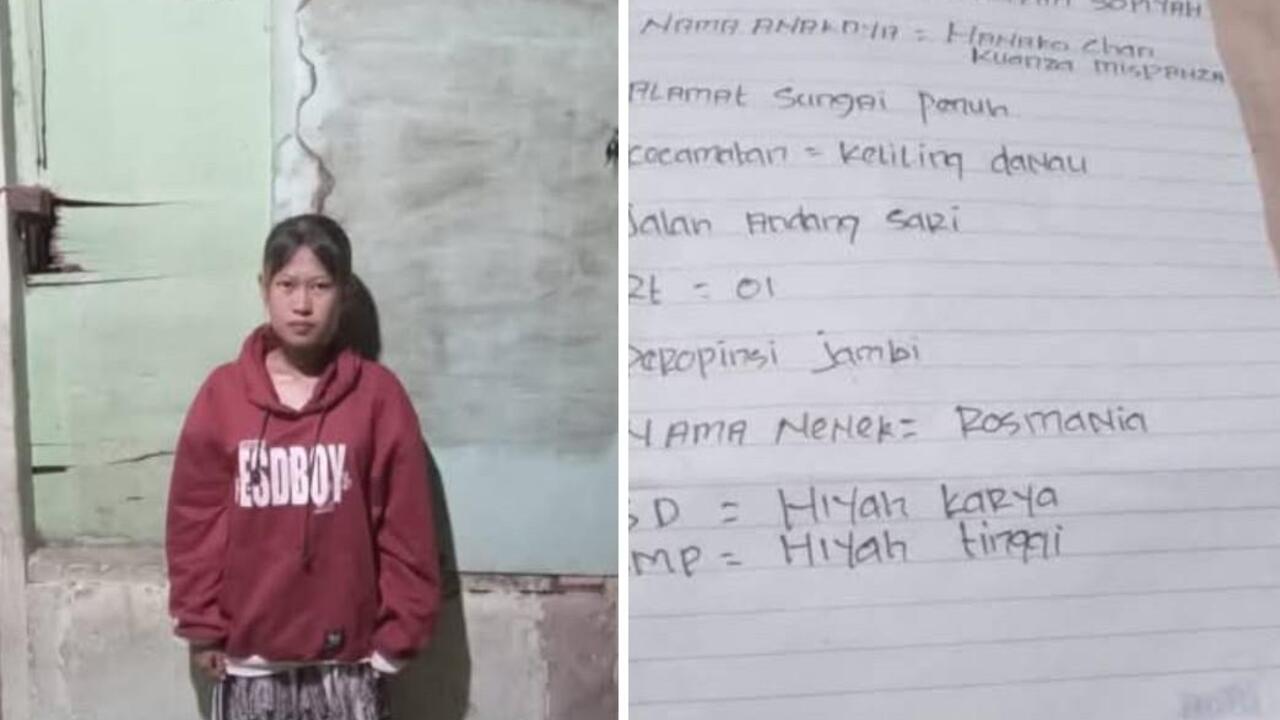 ESDBOY
SOFIYAH
NAMA ANAKNYA = HANAKO Chan
Kuanza MISPAHZA
ALAMAt SungAi penuh
cecamatan = Keliling danau
Jalan Andang SARi
Rt = 01
PeRopinsi jambi
NAMA NeNeK= RosmaNia
SD = HIYah KaRya
SMP = HIYah tinggi